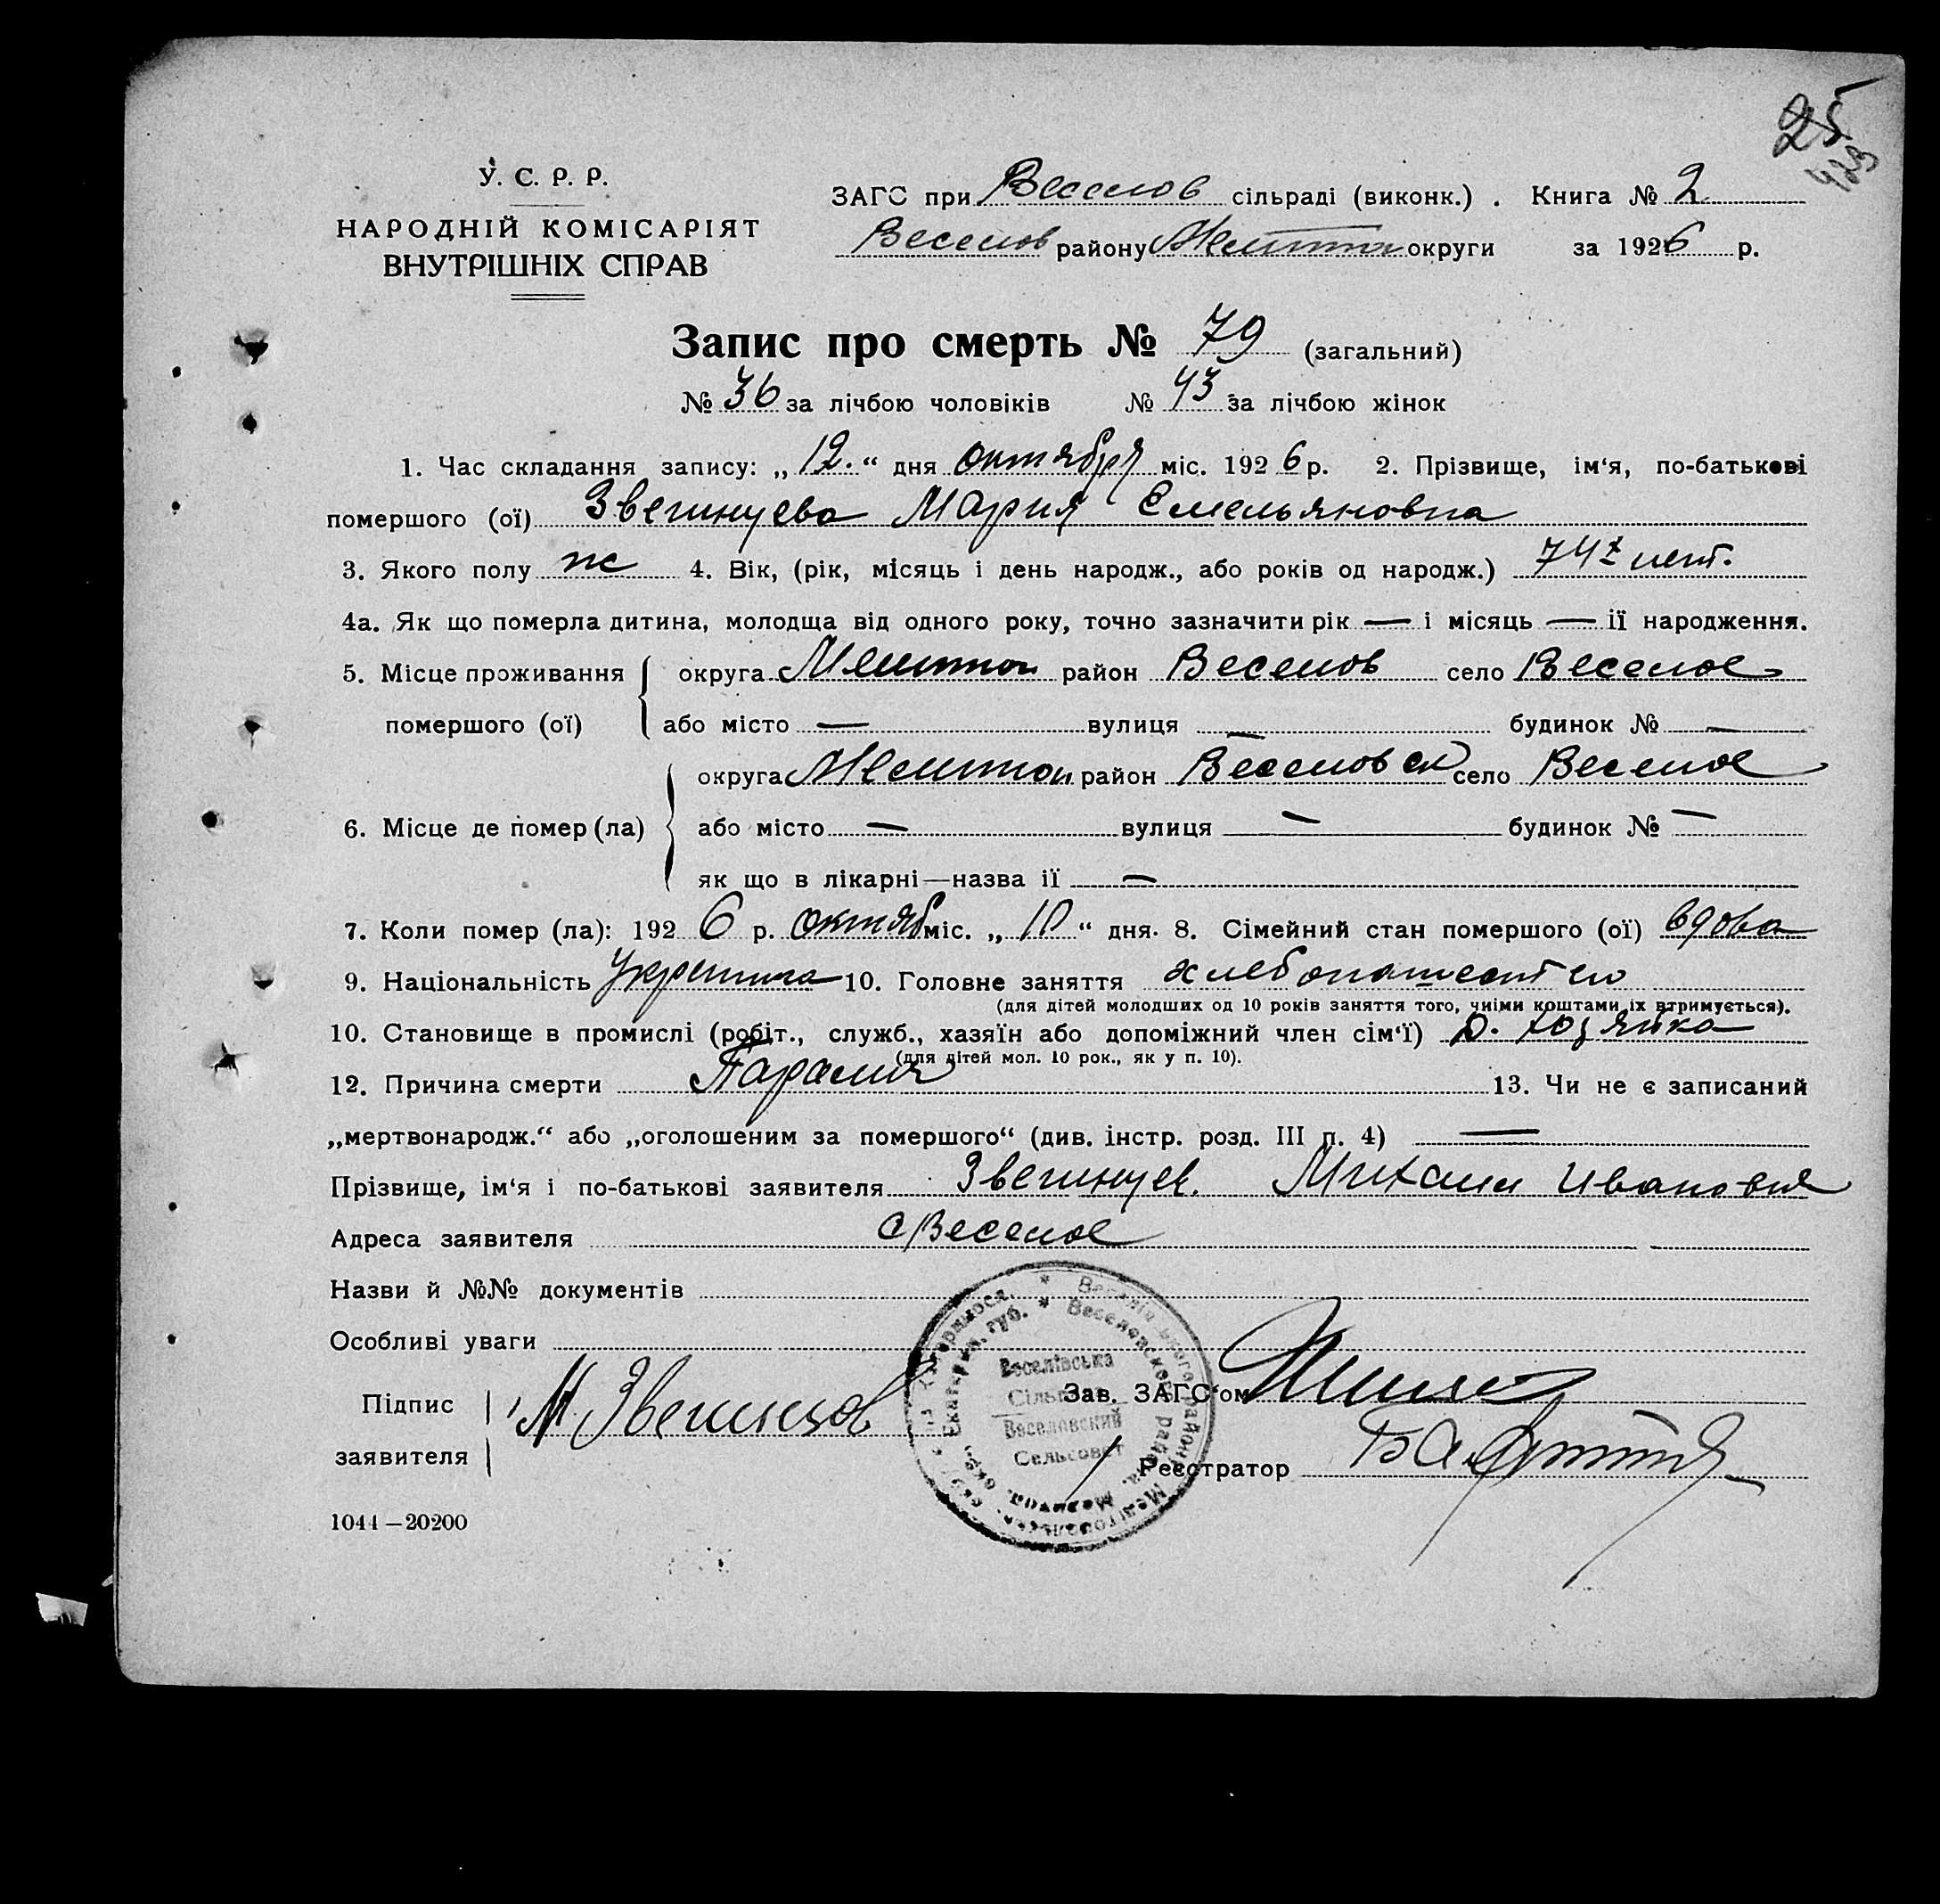 25
423
У. С. Р. Р.
НАРОДНІЙ КОМІСАРІЯТ
ВНУТРІШНІХ СПРАВ
ЗАГС при Веселов сільраді (виконк.) . Книга № 2
Веселов району Мелитоп округи за 1926 р.
Запис про смерть № 79 (загальний)
№ 36 за лічбою чоловіків № 43 за лічбою жінок
1. Час складання запису: „12.“ дня октября міс. 1926 р. 2. Прізвище, ім‘я, по-батькові
помершого (ої) Звегинцева Мария Емельяновна
3. Якого полу ж 4. Вік, (рік, місяць і день народж., або років од народж.) 74х лет.
4а. Як що померла дитина, молодща від одного року, точно зазначити рік — і місяць — ії народження.
5. Місце проживання округа Мелитоп район Веселов село Веселое
помершого (ої) або місто — вулиця — будинок № —
округа Мелитоп район Веселовск село Веселое
6. Місце де помер (ла) або місто — вулиця — будинок № —
як що в лікарні—назва ії —
7. Коли помер (ла): 1926 р. октяб міс. „10“ дня. 8. Сімейний стан помершого (ої) вдова
9. Національність 10. Головне заняття хлебопашество
(для дітей молодших од 10 років заняття того, чиіми коштами їх втримується).
10. Становище в промислі (робіт., служб., хазяїн або допоміжний член сім‘ї) хозяйка
(для дітей мол. 10 рок., як у п. 10).
12. Причина смерти Паралич 13. Чи не є записаний
„мертвонародж.“ або „оголошеним за помершого“ (див. інстр. розд. III п. 4) —
Прізвище, ім‘я і по-батькові заявителя Звегинцев. Михаил Иванович
Адреса заявителя с Веселое
Назви й №№ документів
Особливі уваги
Веселівська
Сільрада
Веселовский
Сельсовет
Зав. ЗАГС‘ом
Підпис
заявителя М. Звегинцов
Реєстратор
1044—20200